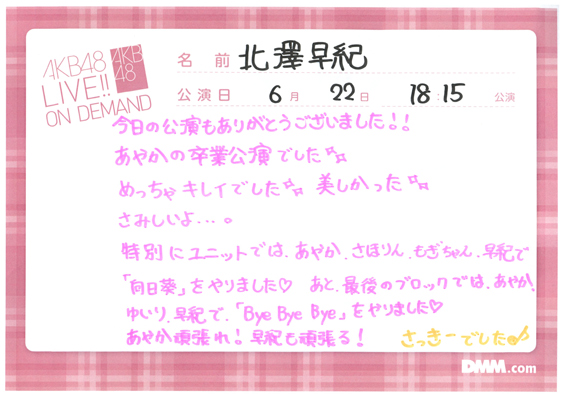 AKB48
LIVE!!
ON DEMAND
AKB
48
名前 北澤早紀
公演日 6月 22日 18:15 公演
今日の公演もありがとうございました!!
あやかの卒業公演でした✨
めっちゃキレイでした✨ 美しかった✨
さみしいよ...。
特別にユニットでは、あやか、さほりん、もぎちゃん、早紀で
「向日葵」をやりました♡ あと、最後のブロックでは、あやか、
ゆいり、早紀で、「Bye Bye Bye」をやりました♡
あやか頑張れ!早紀も頑張る! さっきーでした♪
DMM.com